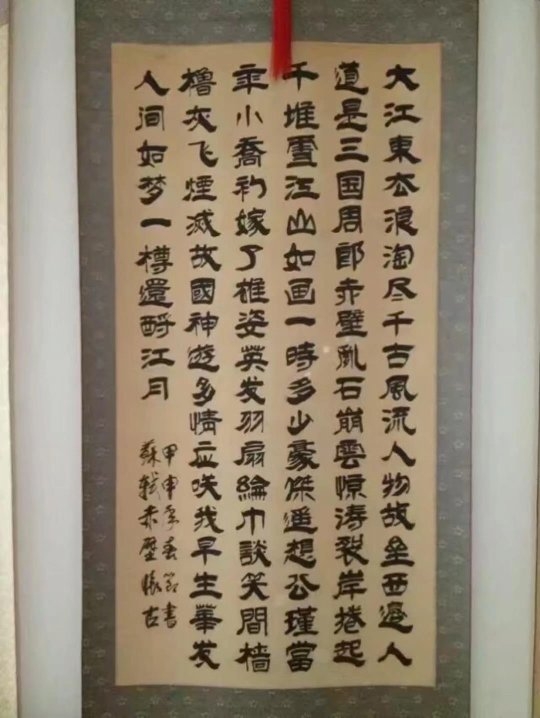 大江東去浪淘尽千古風流人物故垒西邊人
道是三国周郎赤壁乱石崩雲惊涛裂岸捲起
千堆雪江山如画一時多少豪傑遥想公瑾當
年小喬初嫁了雄姿英发羽扇綸巾談笑間檣
櫓灰飞煙滅故國神遊多情应笑我早生華发
人间如梦一樽還酹江月
甲申年春节書
蘇轼赤壁懷古